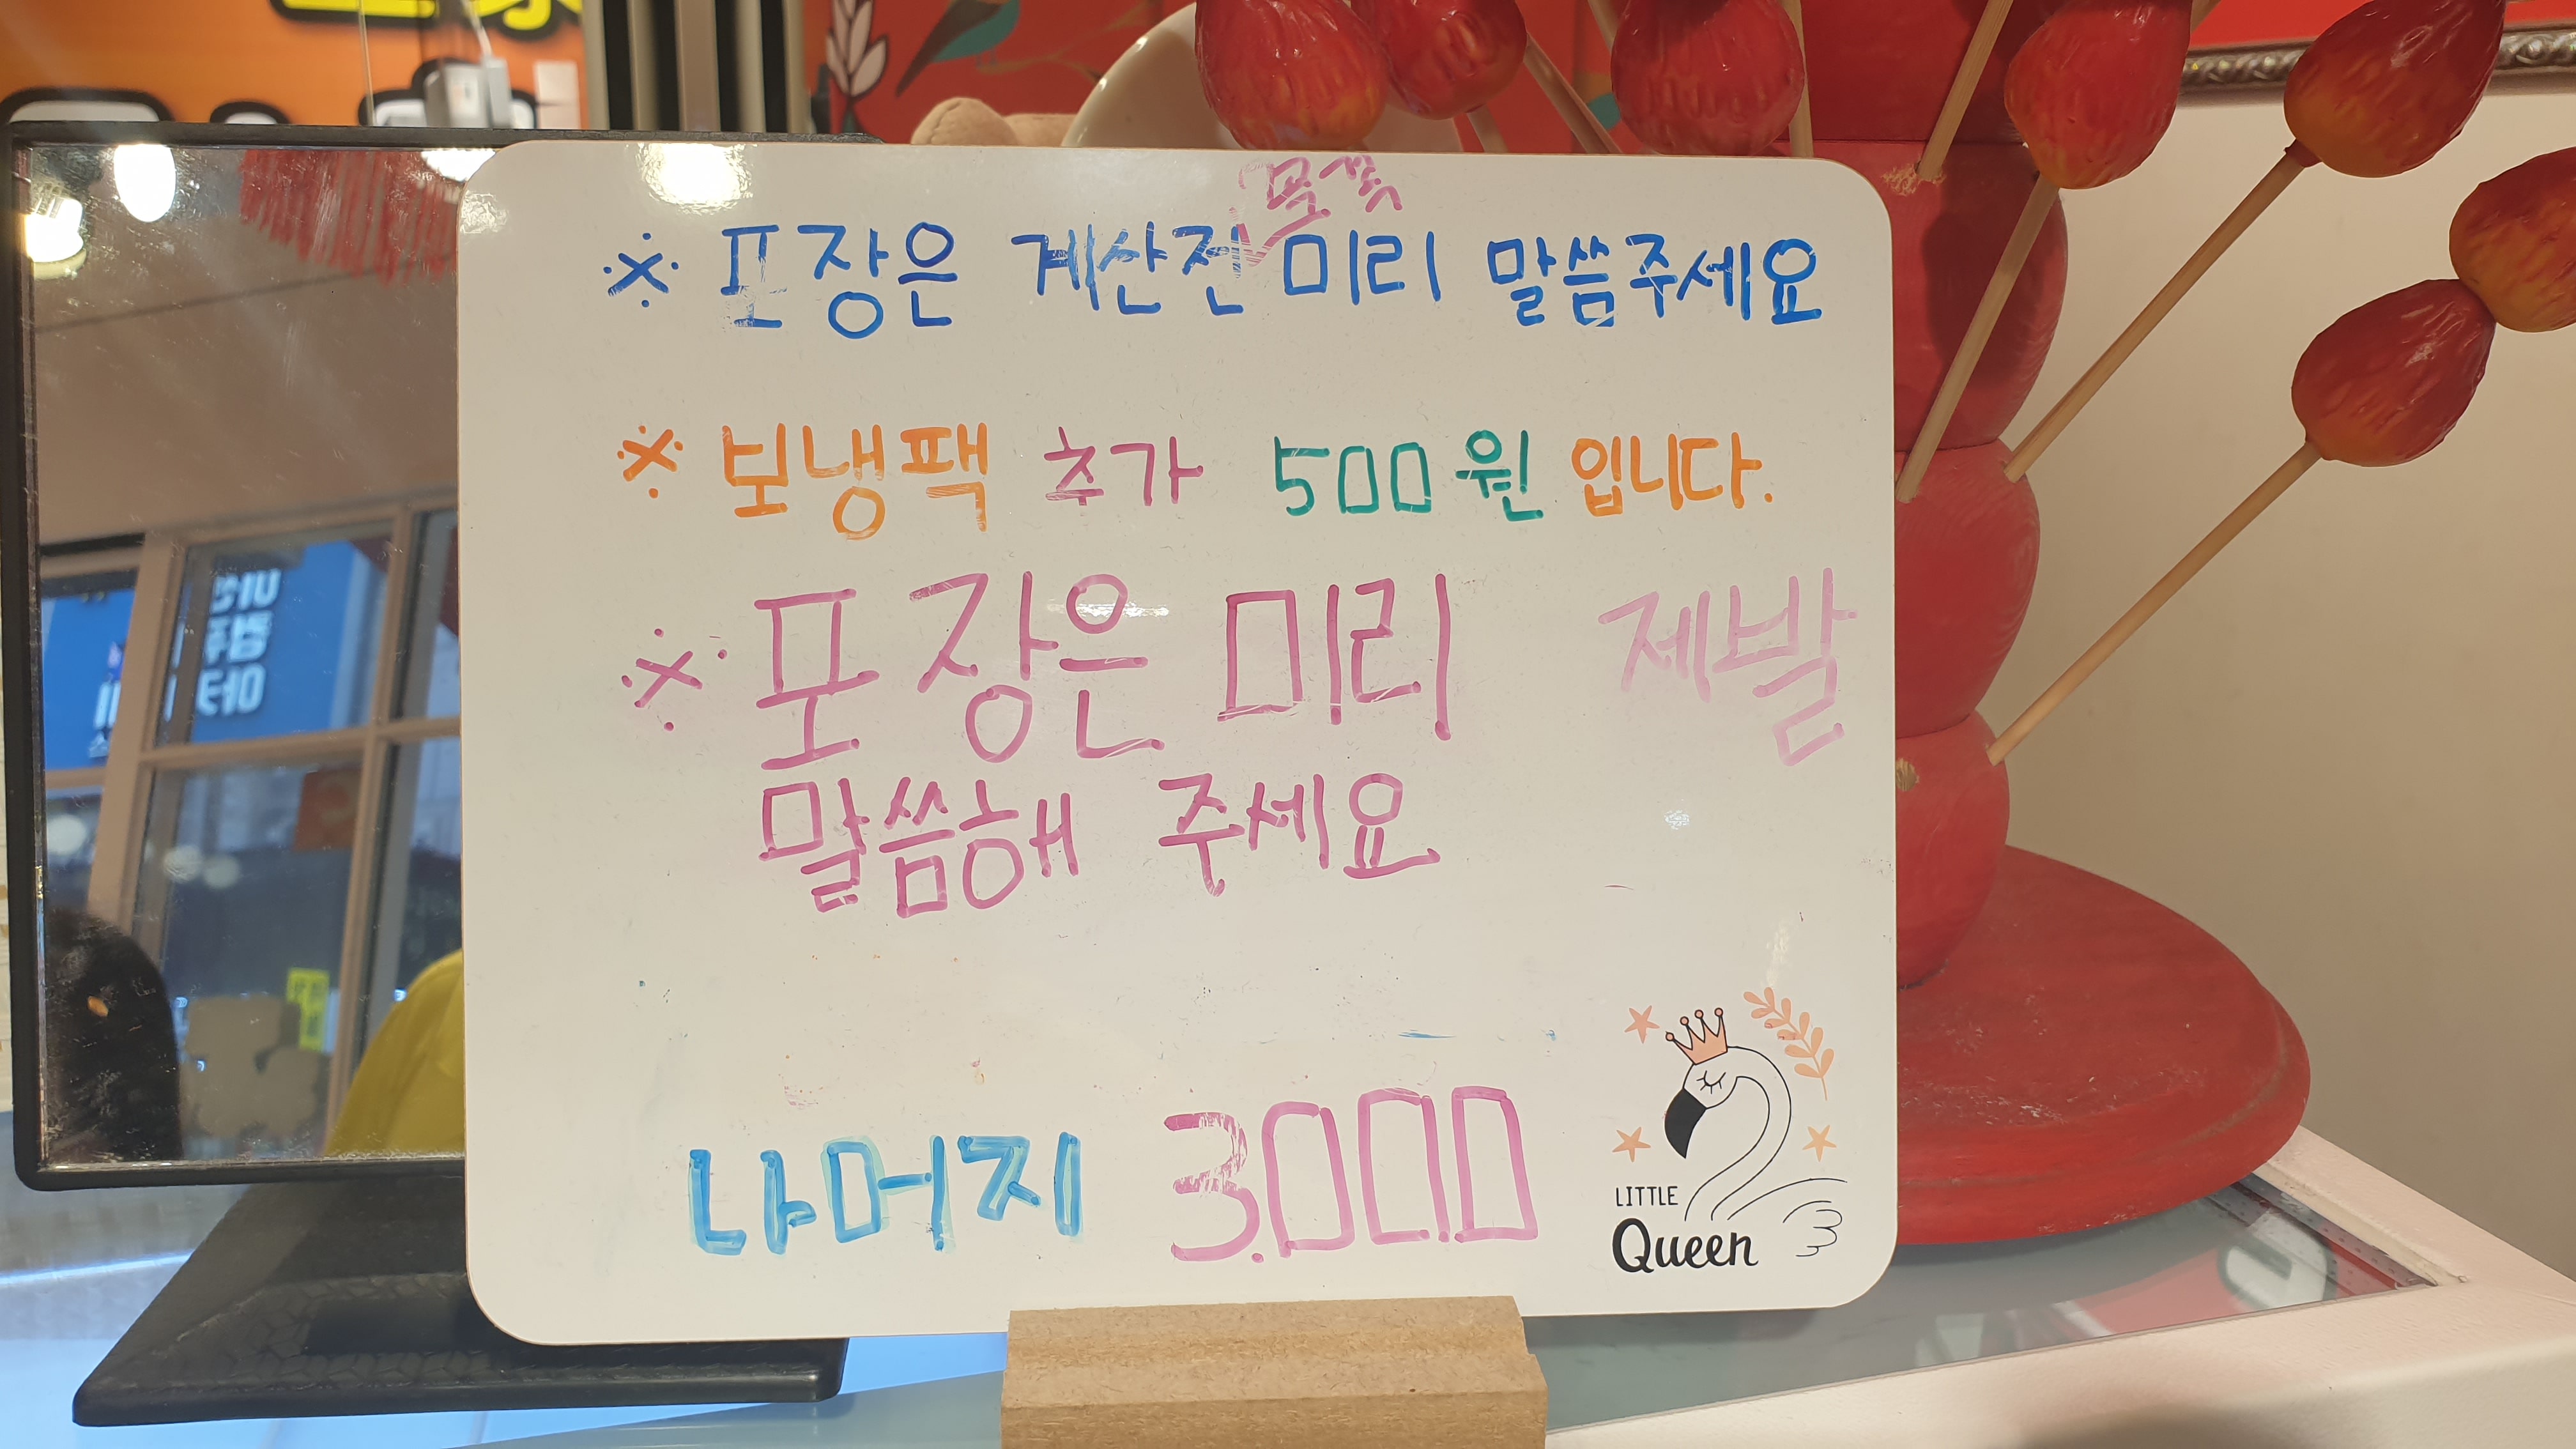 ※ 포장은 계산전 미리 말씀주세요
※ 보냉팩 추가 500원 입니다.
※ 포장은 미리 제발
말씀해 주세요
나머지 3.000
LITTLE
Queen